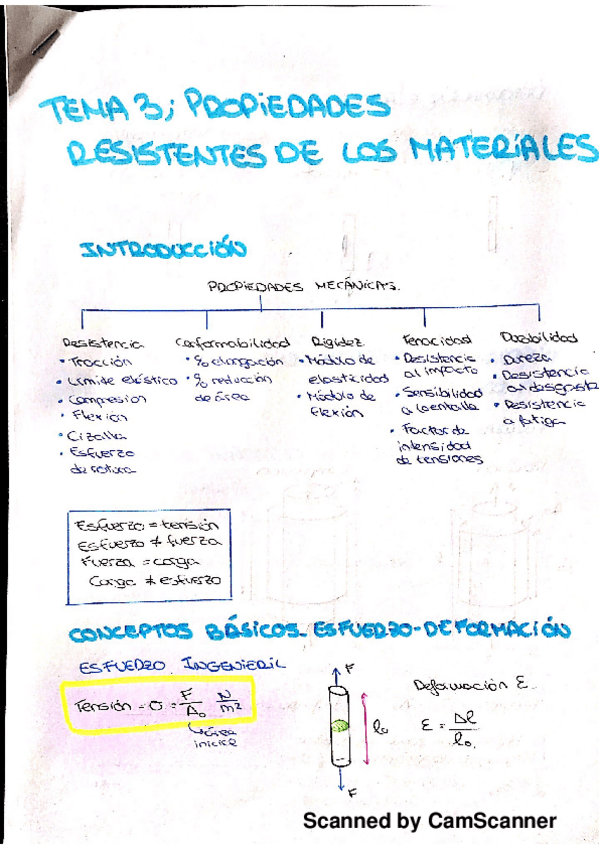 TEMA 3; PROPIEDADES
RESISTENTES DE LOS MATERIALES
INTRODUCCIÓN
PROPIEDADES MECÁNICAS.
Resistencia
• Tracción
• Límite elástico
• Compresión
• Flexión
• Cizalla
• Esfuerzo
de rotura
Conformabilidad
• % elongación
• % reducción
de área
Rigidez
• Módulo de
elasticidad
• Módulo de
flexión
Tenacidad
• Resistencia
al impacto
• Sensibilidad
a la entalla
• Factor de
intensidad
de tensiones
Durabilidad
• Dureza
• Resistencia
al desgaste
• Resistencia
a fatiga
Esfuerzo = tensión
Esfuerzo ≠ fuerza
Fuerza = carga
Carga ≠ esfuerzo
CONCEPTOS BÁSICOS. ESFUERZO-DEFORMACIÓN
ESFUERZO INGENIERIL
Tensión = σ = F/A₀ N/m²
área
inicial
F
l₀
F
Deformación ε
ε = Δl/l₀
Scanned by CamScanner